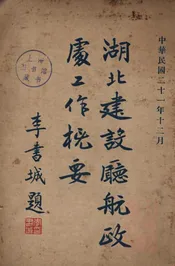 中華民國二十一年十二月
湖北建設廳航政
處工作概要
李書城題